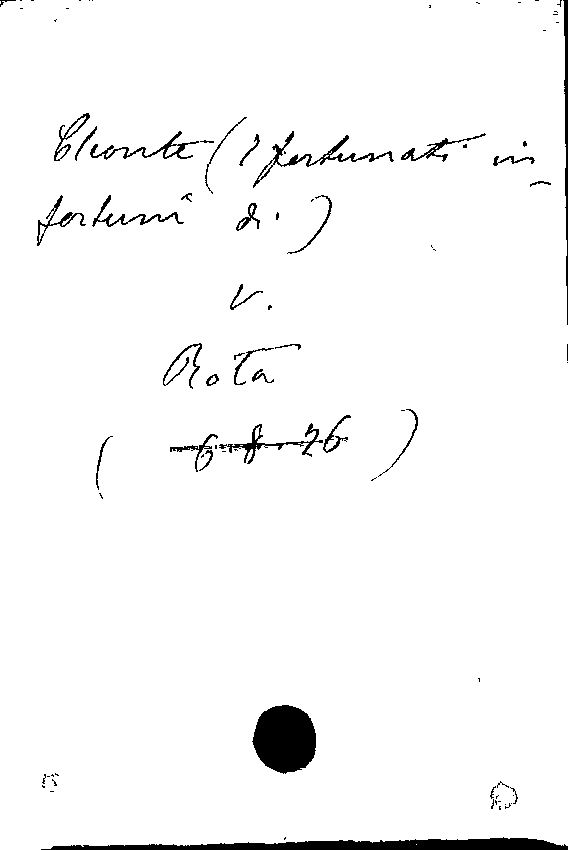 Cleonte (I fortunati in-
fortunî di.)
V.
Rota
( 6.8.26 )